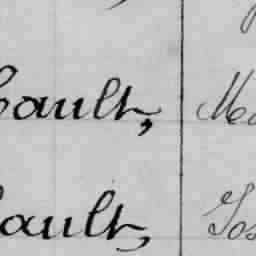 bault, Ma
bault, Jos